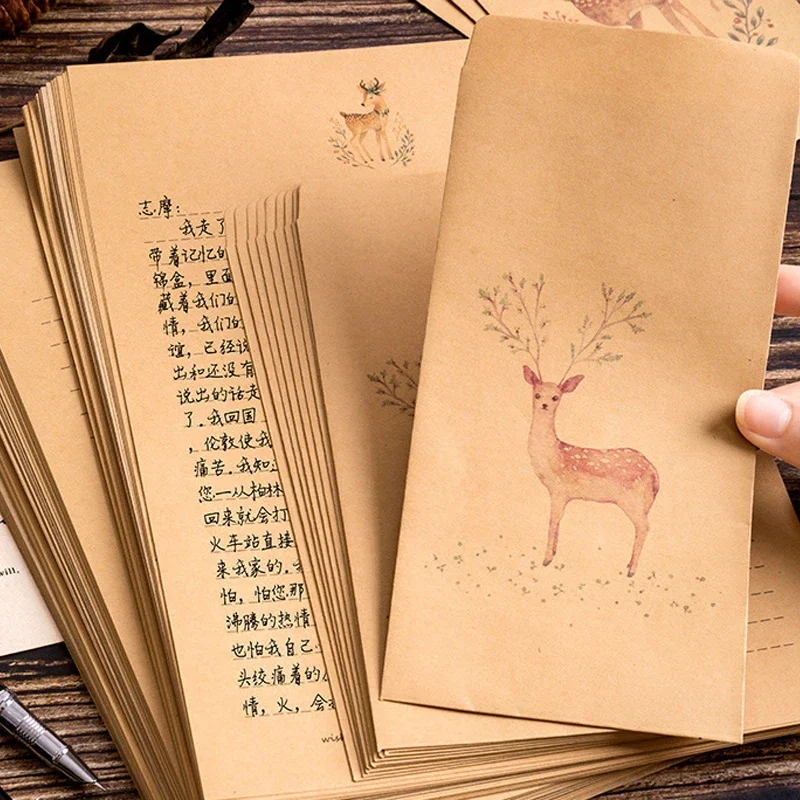 志摩:
我走了
带着记忆的
锦盒，里面
藏着我们的
情，我们的
谊，已经说
出和还没有
说出的话走
了.我回国
，伦敦使我
痛苦.我知道
您一从柏林
回来就会打
火车站直接
来我家的.
怕，怕您那
沸腾的热情
也怕我自己
头绞痛着的
情，火，会
wis
will,